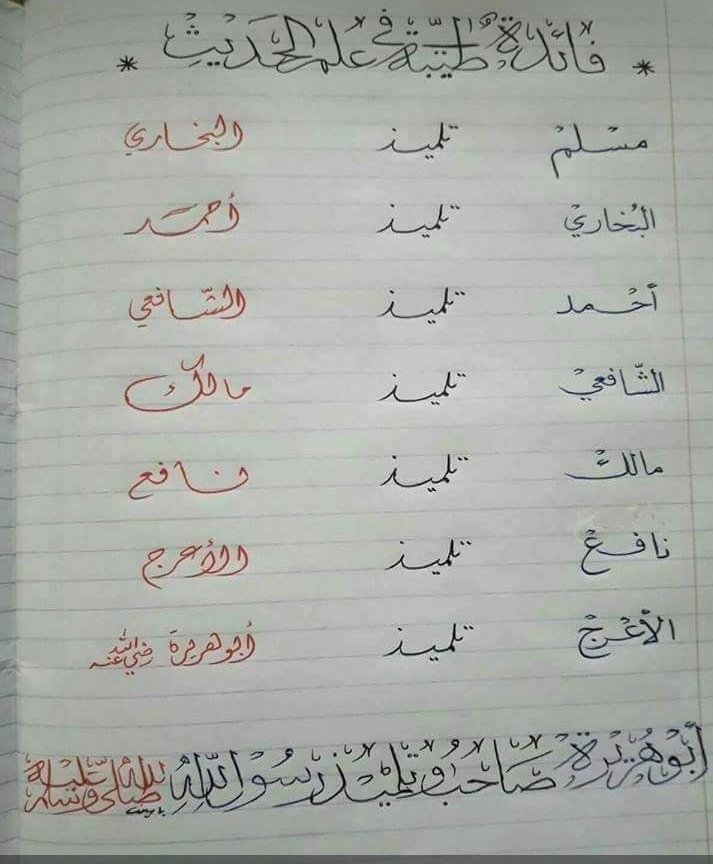 * فَائدةٌ طيّبة في علم الحَديثِ *
مسلم تلميذ البخاري
البُخاريْ تلميذ أحمد
أحمد تلميذ الشّافعي
الشّافعيْ تلميذ مالك
مالك تلميذ نافع
نافع تلميذ الأعرج
الأعرج تلميذ أبو هريرة رضي الله عنه
أبو هُريرة صَاحبُ و تلميذ رسُول اللهِ صلى الله عليه وسلم